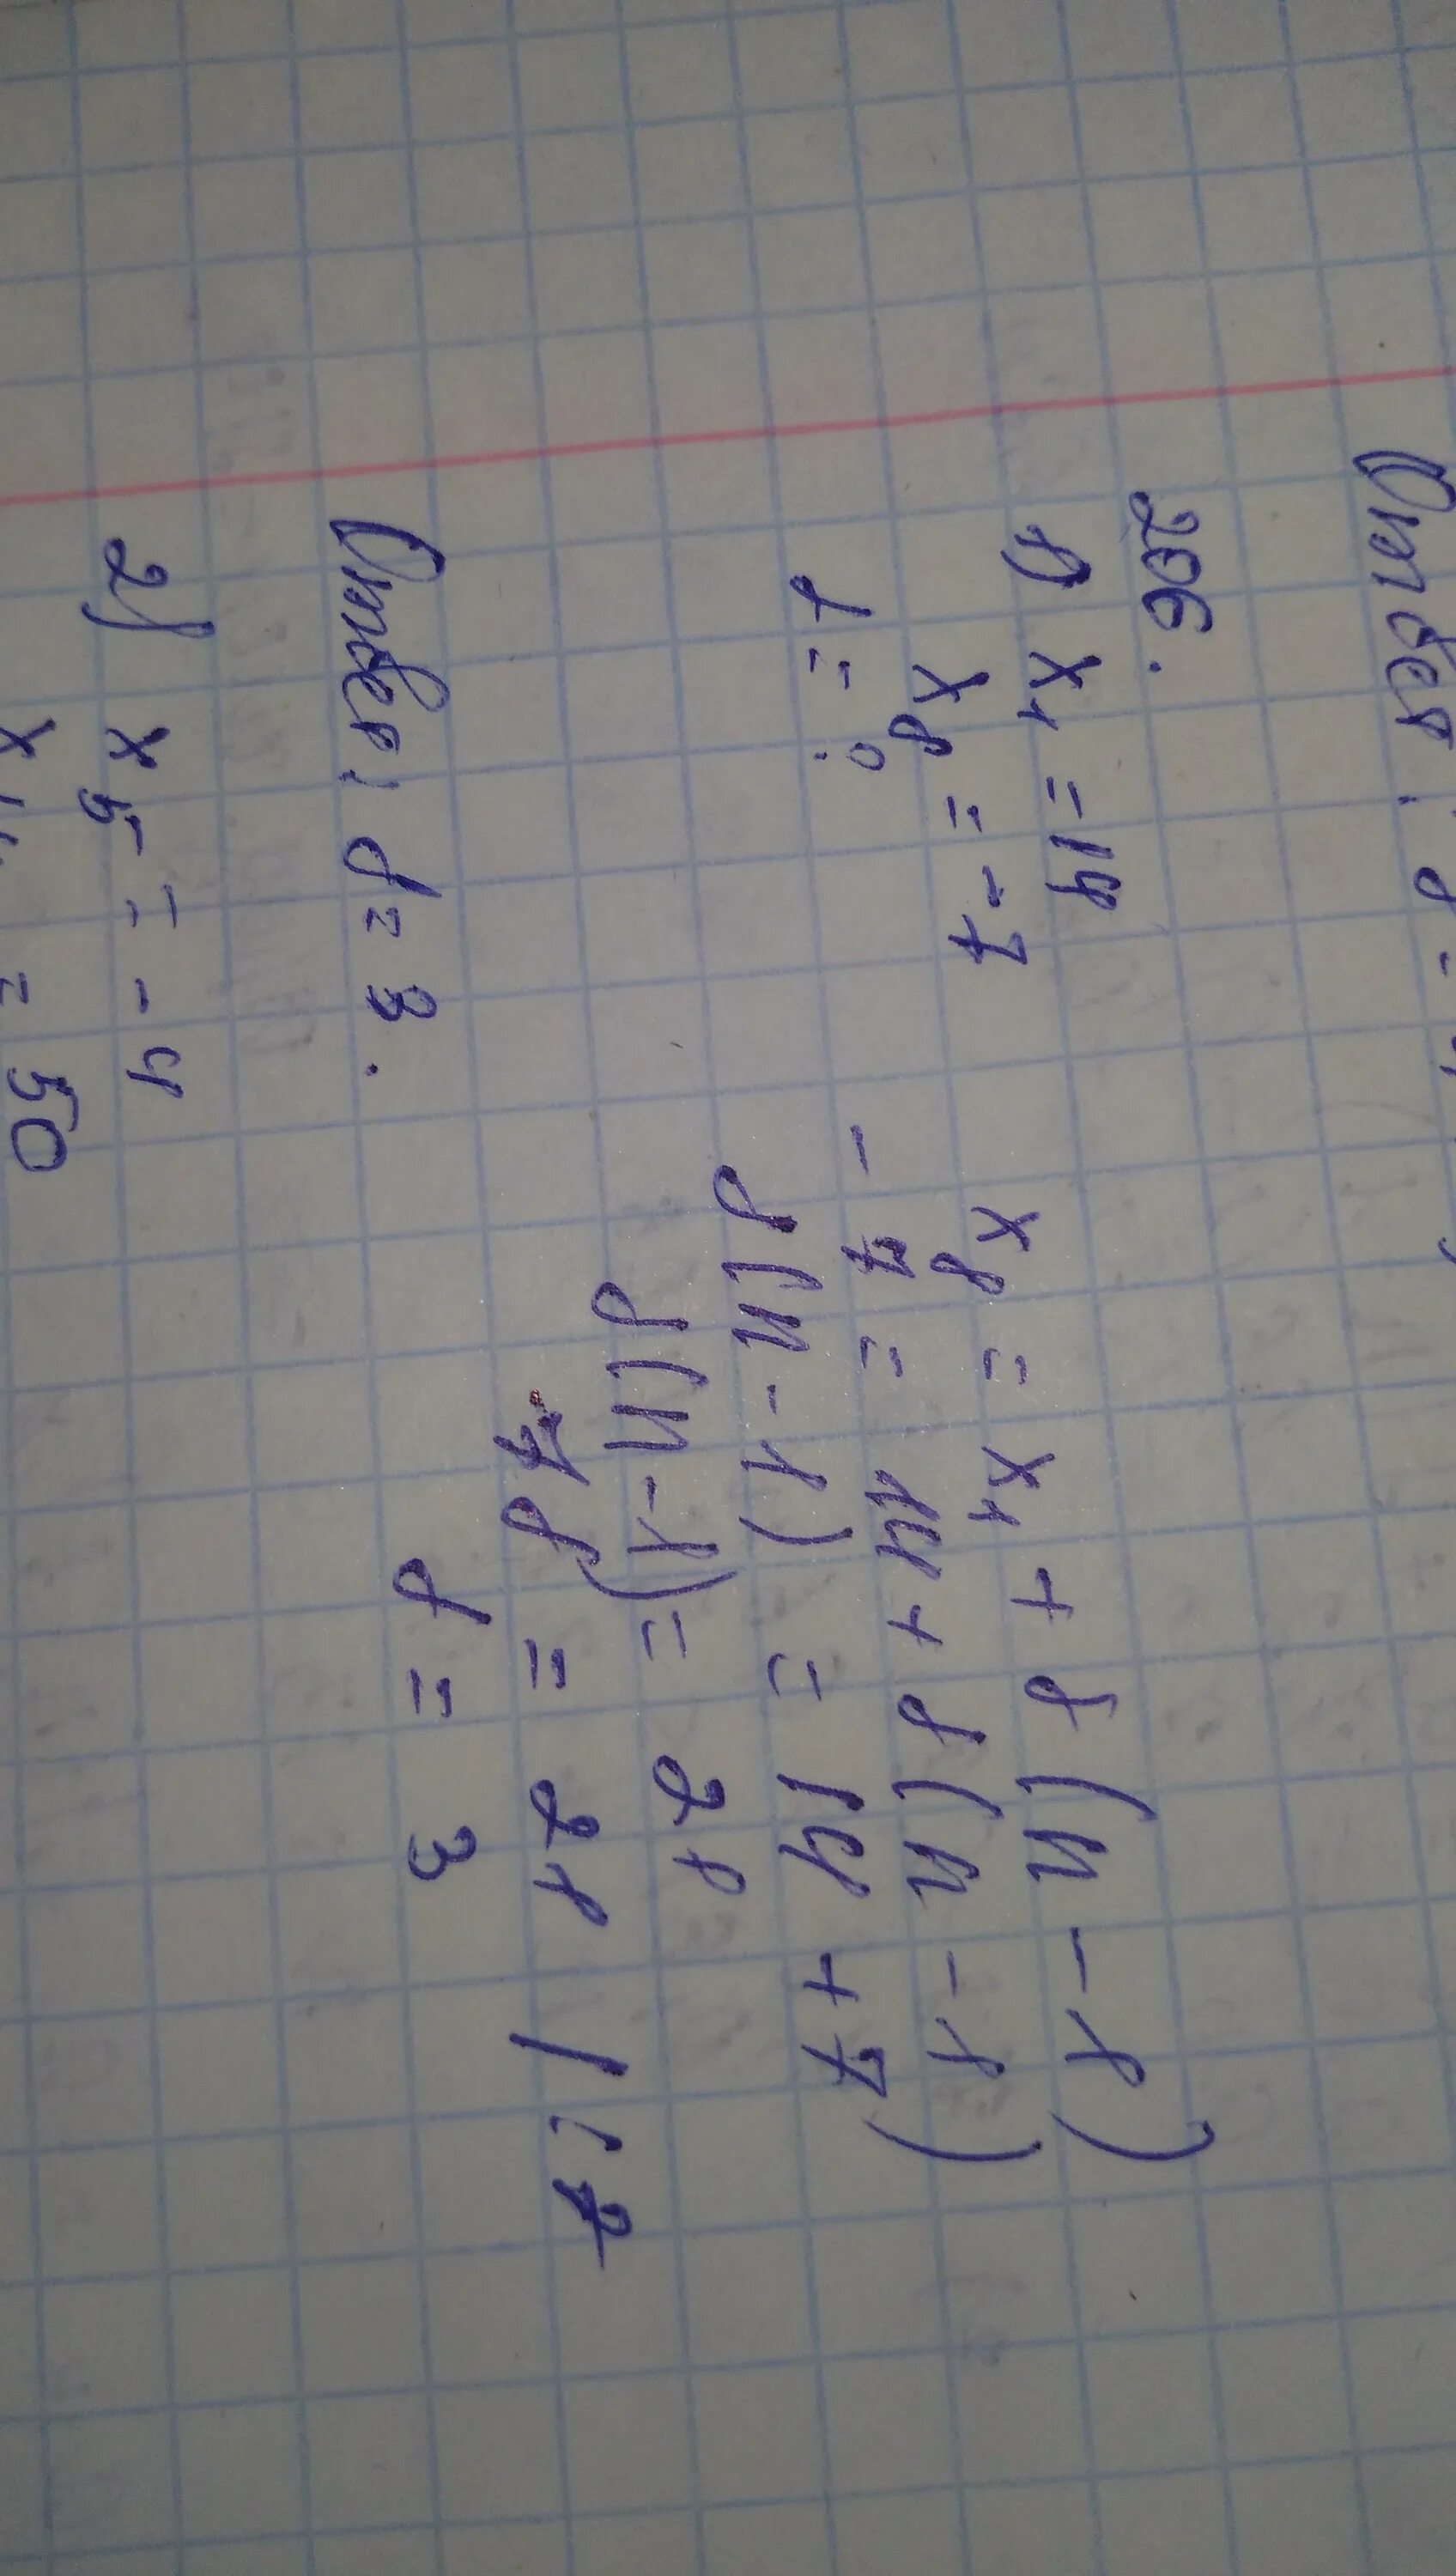 Ответ:
206.
1) x₁ = 14
x₈ = -7
d = ?
x₈ = x₁ + d(n - 1)
-7 = 14 + d(n - 1)
d(n - 1) = 14 + 7
d(n - 1) = 21
7d = 21 | : 7
d = 3
Ответ: d = 3.
2) x₅ = -4
x = 50